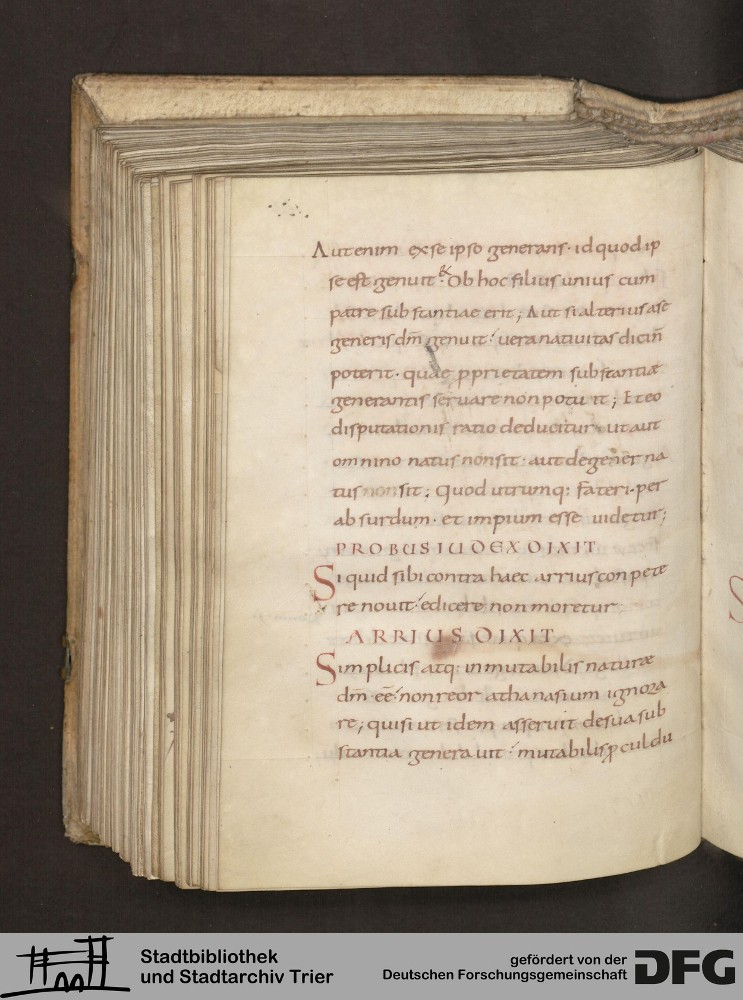 Aut enim ex se ipso generans · id quod ip
se est genuit · & Ob hoc filius unius cum
patre substantiae erit ; Aut si alterius a se
generis dm̄ genuit · uera natiuitas dici n̄
poterit · quae pprietatem substantiae
generantis seruare non potuit ; Et eo
disputationis ratio deducitur · ut aut
omnino natus non sit · aut degener na
tus non sit ; Quod utrumq: fateri · per
absurdum · et impium esse uidetur ;
PROBUS IUDEX DIXIT
Si quid sibi contra haec arrius conpete
re nouit · edicere non moretur
ARRIUS DIXIT
Simplicis atq: inmutabilis naturae
dm̄ eē · non reor athanasium ignora
re ; qui si ut idem asseruit de sua sub
stantia generauit · mutabilis ꝓcul du
Stadtbibliothek
und Stadtarchiv Trier
gefördert von der
Deutschen Forschungsgemeinschaft
DFG